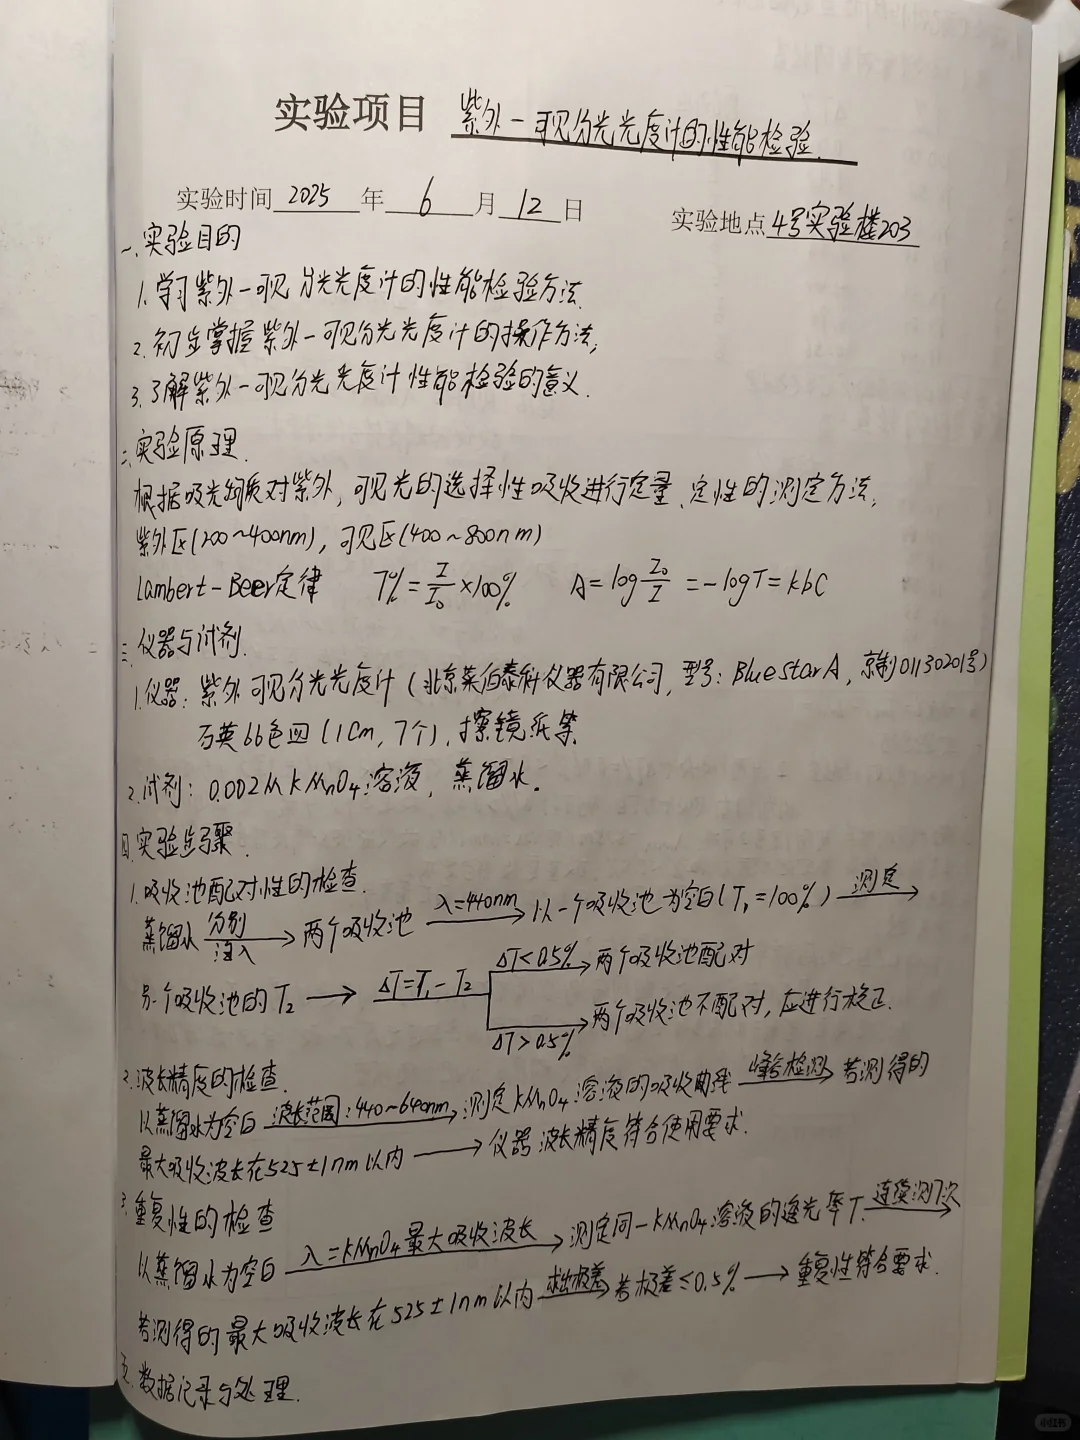 实验项目 紫外-可见分光光度计的性能检验.
实验时间 2025 年 6 月 12 日 实验地点 4号实验楼203
一、实验目的
1. 学习紫外-可见分光光度计的性能检验方法.
2. 初步掌握紫外-可见分光光度计的操作方法;
3. 了解紫外-可见分光光度计性能检验的意义.
二、实验原理.
根据吸光物质对紫外,可见光的选择性吸收进行定量、定性的测定方法,
紫外区(200~400nm), 可见区(400~800nm)
Lambert-Beer定律 T%=I/I₀×100% A=log I₀/I=-logT=kbC
三、仪器与试剂.
1.仪器: 紫外可见分光光度计 (北京莱伯泰科仪器有限公司, 型号: Blue star A, 京制01130201号)
石英比色皿 (1cm, 7个), 擦镜纸等.
2.试剂: 0.002M KMnO₄溶液, 蒸馏水.
四.实验步骤.
1.吸收池配对性的检查.
蒸馏水 分别注入→ 两个吸收池 λ=440nm→ 以一个吸收池为空白(T₁=100%) 测定→
另一个吸收池的T₂ → ΔT=T₁-T₂ ΔT<0.5%→ 两个吸收池配对
ΔT>0.5%→ 两个吸收池不配对, 应进行校正.
2.波长精度的检查.
以蒸馏水为空白 波长范围:440~640nm→ 测定KMnO₄溶液的吸收曲线 峰谷检测→ 若测得的
最大吸收波长在525±1nm以内 → 仪器波长精度符合使用要求.
3.重复性的检查
以蒸馏水为空白 λ=KMnO₄最大吸收波长→ 测定同一KMnO₄溶液的透光率T, 连续测7次→
若测得的最大吸收波长在525±1nm以内 求出极差→ 若极差≤0.5% → 重复性符合要求.
五.数据记录与处理.
小红书